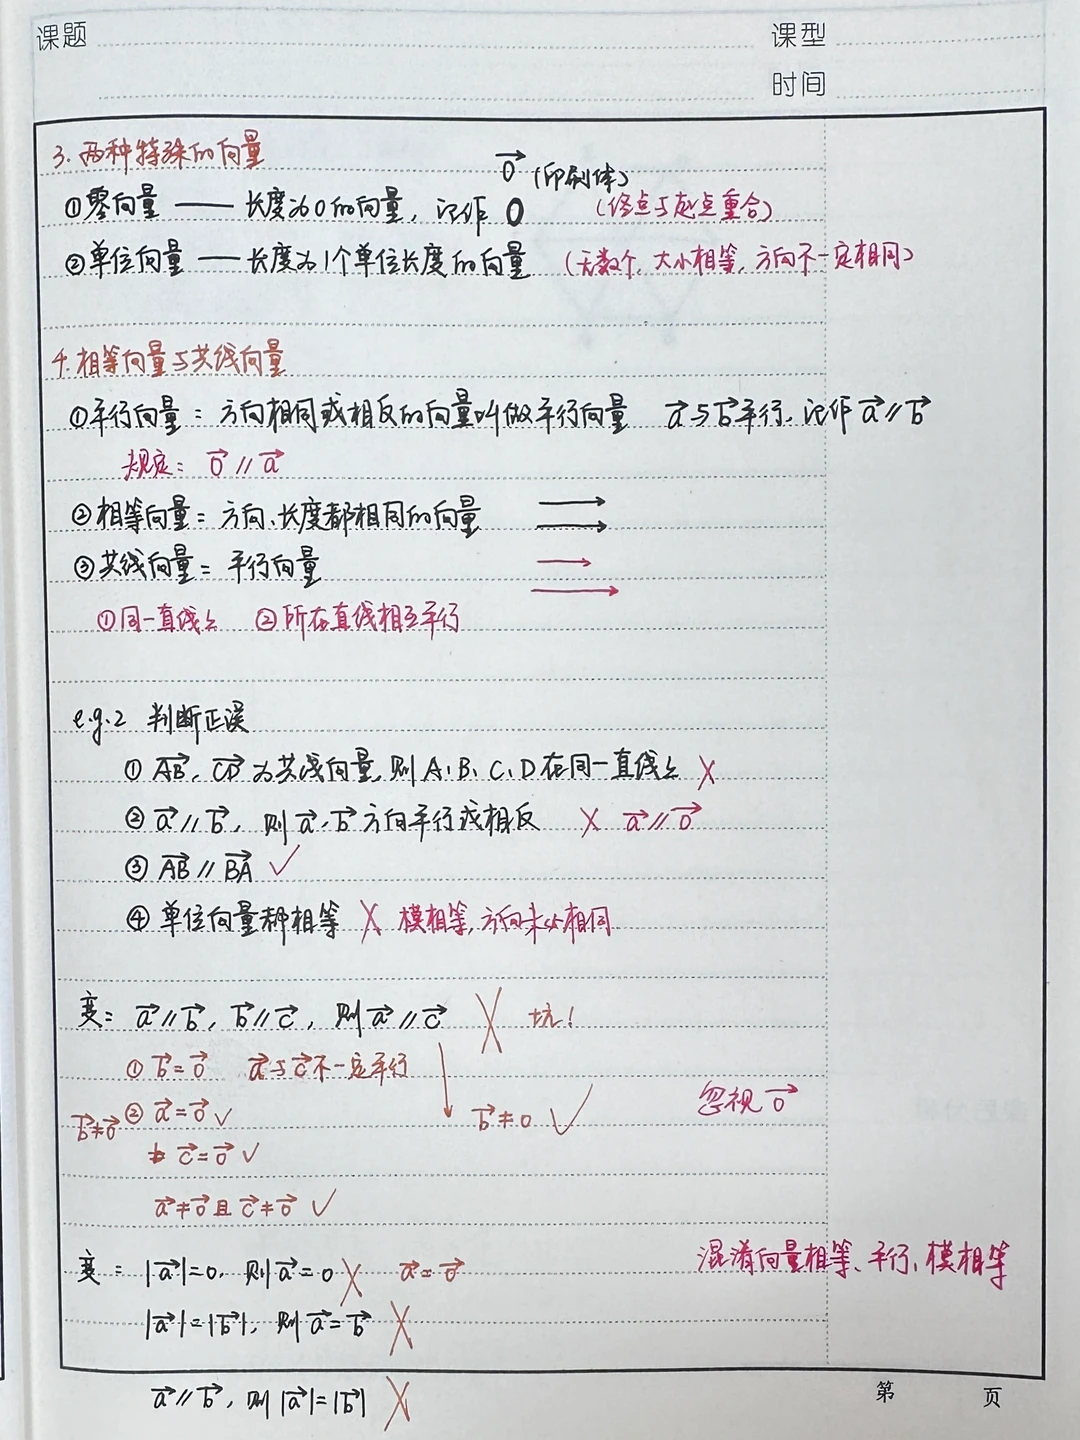 课题
课型
时间
3. 两种特殊的向量
①零向量 —— 长度为0的向量, 记作 0 →0 (印刷体) (终点与起点重合)
②单位向量 — 长度为1个单位长度的向量 (无数个, 大小相等, 方向不一定相同)
4. 相等向量与共线向量
①平行向量: 方向相同或相反的向量叫做平行向量 →a与→b平行, 记作→a∥→b
规定: →0∥→a
②相等向量: 方向、长度都相同的向量
③共线向量: 平行向量
①同一直线上 ②所在直线相互平行
e.g.2 判断正误
①→AB, →CD为共线向量, 则A、B、C、D在同一直线上 ×
②→a∥→b, 则→a、→b方向平行或相反 × →a∥→0
③→AB∥→BA ✓
④单位向量都相等 × 模相等, 方向未必相同
变: →a∥→b, →b∥→c, 则→a∥→c × 坑!
①→b=→0 →a与→c不一定平行
→b≠→0 ②→a=→0 ✓ →b≠0 ✓ 忽视→0
→c=→0 ✓
→a≠→0且→c≠→0 ✓
变: |→a|=0, 则→a=0 × →a=→0 混淆向量相等、平行、模相等
|→a|=|→b|, 则→a=→b ×
→a∥→b, 则|→a|=|→b| ×
第 页